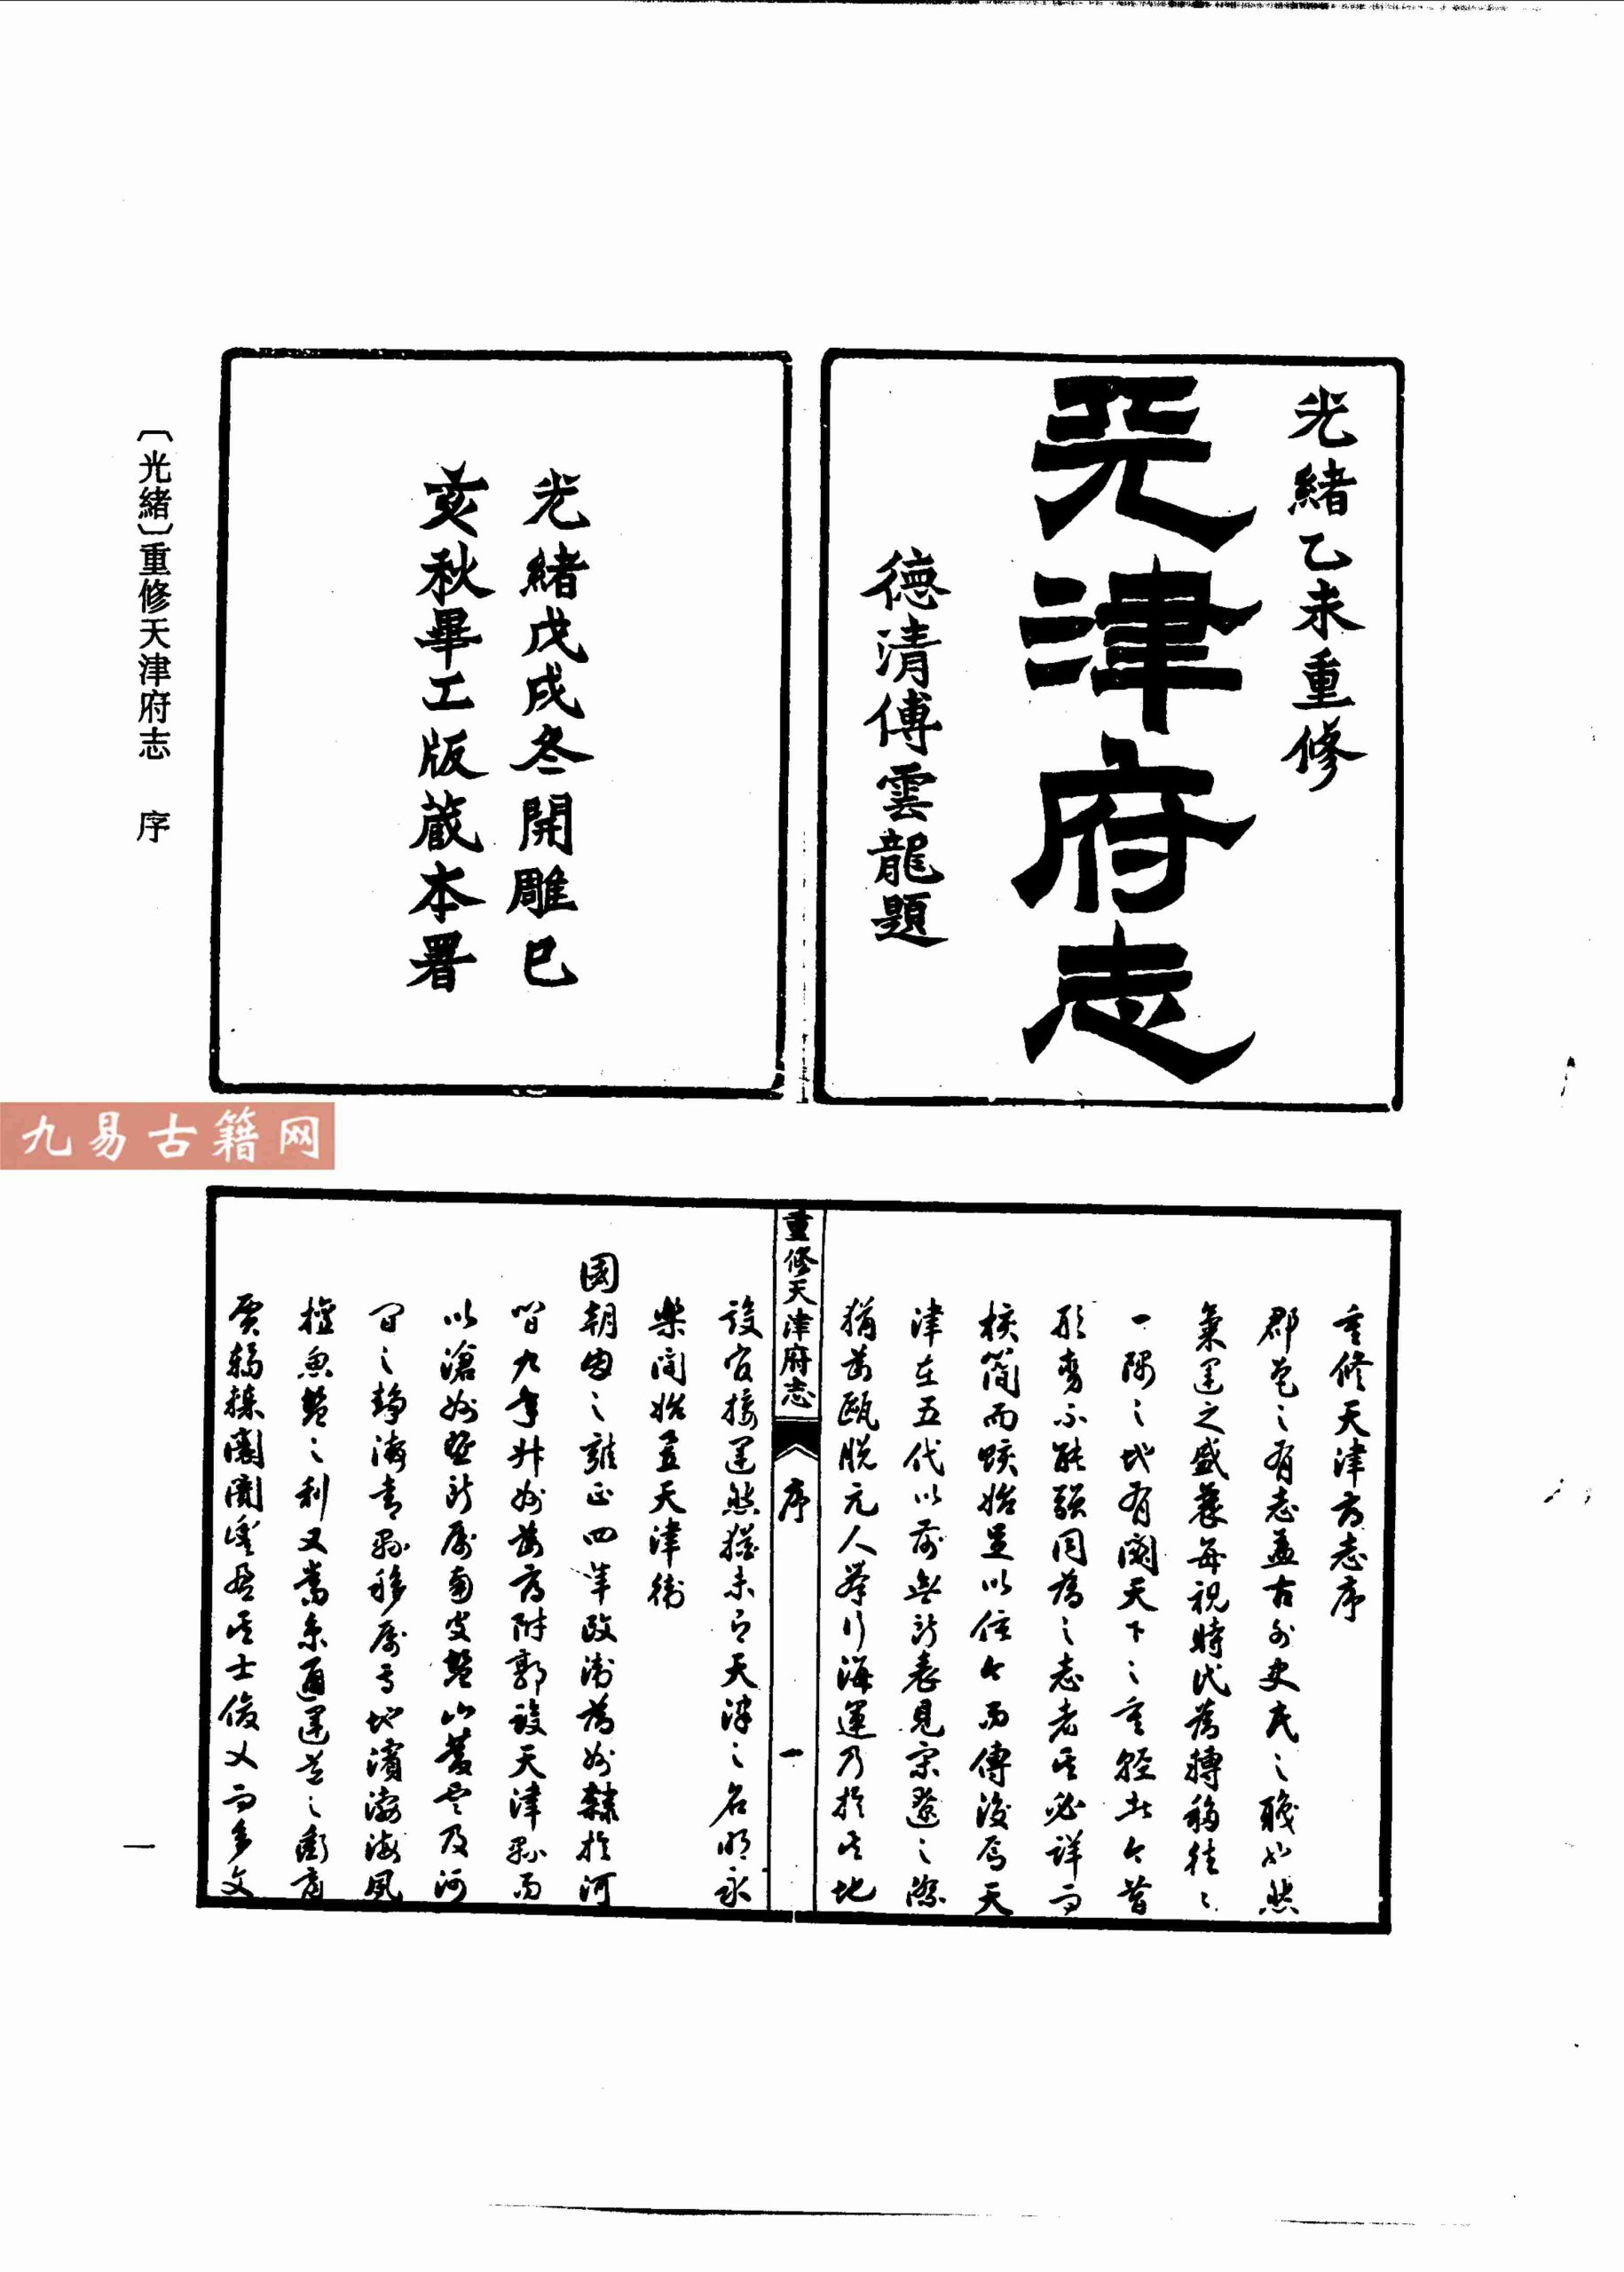 光緒乙未重修
天津府志
德清傅雲龍題
光緒戊戌冬開雕己
亥秋畢工版藏本署
〔光緒〕重修天津府志　序
九易古籍网
重修天津府志序
郡邑之有志蓋古外史氏之職也然
氣運之盛衰每視時代為轉移往往
一隅之地有關天下之重輕者今昔
形勢不能強同為之志者其必詳而
核簡而賅始足以信今而傳後焉天
津在五代以前無所表見宋遼之際
猶為甌脫元人舉行海運乃於其地
重修天津府志　序　一
設官接運然猶未以天津之名明永
樂間始置天津衛
國朝因之雍正四年改衛為州隸於河
間九年升州為府附郭設天津縣而
以滄州暨所屬南皮鹽山慶雲及河
間之靜海青縣移屬焉地濱渤海夙
擅魚鹽之利又當京通運道之衝商
賈輻輳闤闠<br>士俊乂而多文
一